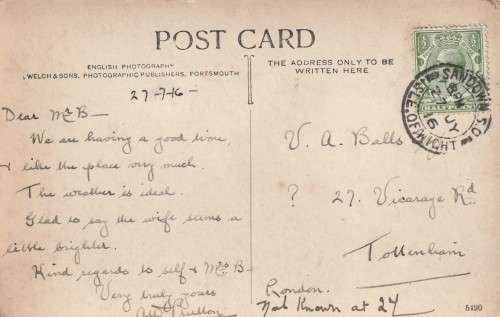 POST CARD
ENGLISH PHOTOGRAPHY
WELCH & SONS, PHOTOGRAPHIC PUBLISHERS, PORTSMOUTH
THE ADDRESS ONLY TO BE
WRITTEN HERE
27-7-16-
Dear Mr B—
We are having a good time,
& like the place very much.
The weather is ideal.
Glad to say the wife seems a
little brighter.
Kind regards to self & Mrs B—
Very truly yours
V. A. Balls
? 27. Vicarage Rd
Tottenham
London.
Not Known at 27
5490
SANDOWN S.O.
ISLE.OF.WIGHT
27 JY
16